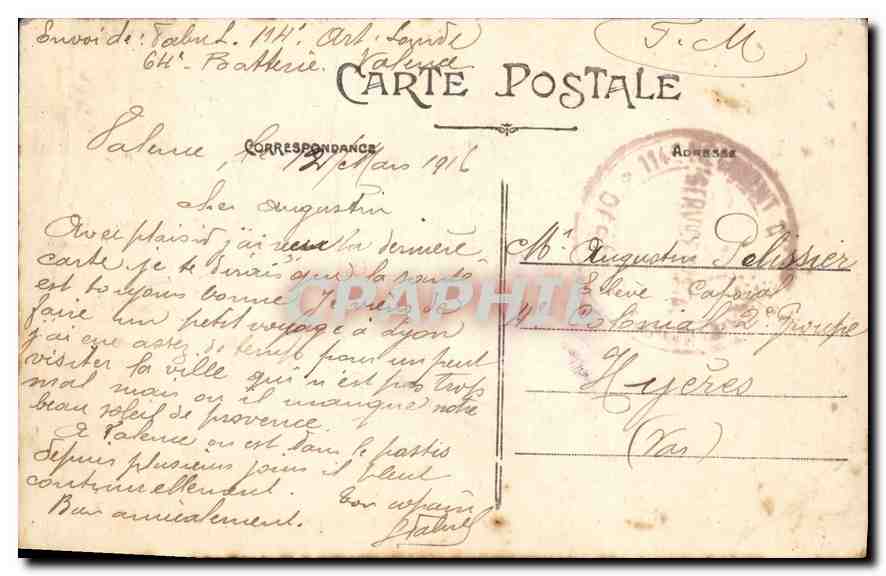 Envoi de : Fabre. 114e Art. Lourde
64e Batterie. Valence
F. M.
CARTE POSTALE
CORRESPONDANCE
ADRESSE
Valence, le 12 Mars 1916
Cher Augustin
Avec plaisir j'ai reçu ta dernière
carte je te dirais que la santé
est toujours bonne. Je viens de
faire un petit voyage à Lyon
j'ai eue assez de temps pour un peut
visiter la ville qui n'est pas trop
mal mais où il manque notre
beau soleil de provence.
A Valence on est dans le pastis
depuis plusieurs jours il pleut
continuellement.
Ton copain
Bien amicalement.
Fabre
Mr Augustin Pelissier
Elève Caporal
4e Colonial 2e Groupe
Hyères
(Var)
114
CPAPHIL